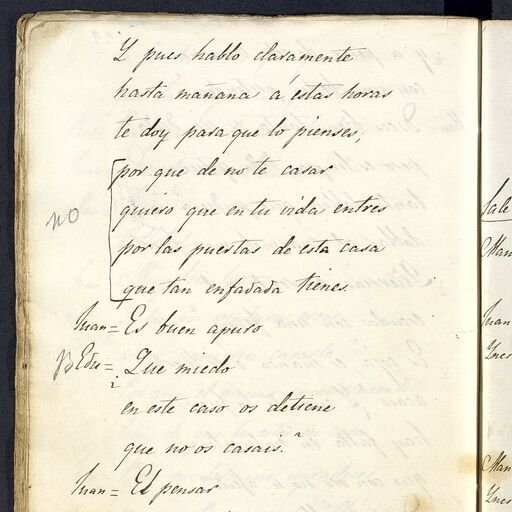 Y pues hablo claramente
hasta mañana á estas horas
te doy para que lo pienses;
por que de no te casar
no
quiero que en tu vida entres
por las puertas de esta casa
que tan enfadada tienes.
Juan = Es buen apuro
Edu = ¿Que miedo
en este caso os detiene
que no os casais?
Juan = El pensar
Sale
Man
Juan
Ynes
Man
Ynes